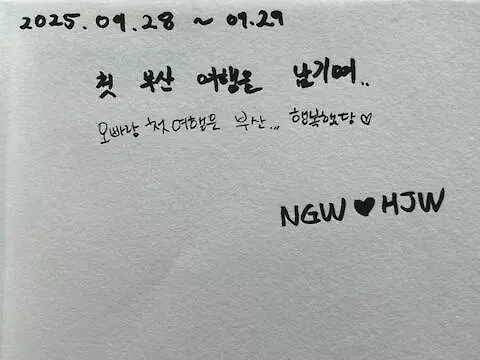 2025.09.28 ~ 09.29
첫 부산 여행을 남기며..
오빠랑 첫 여행은 부산... 행복했당♡
NGW♥HJW